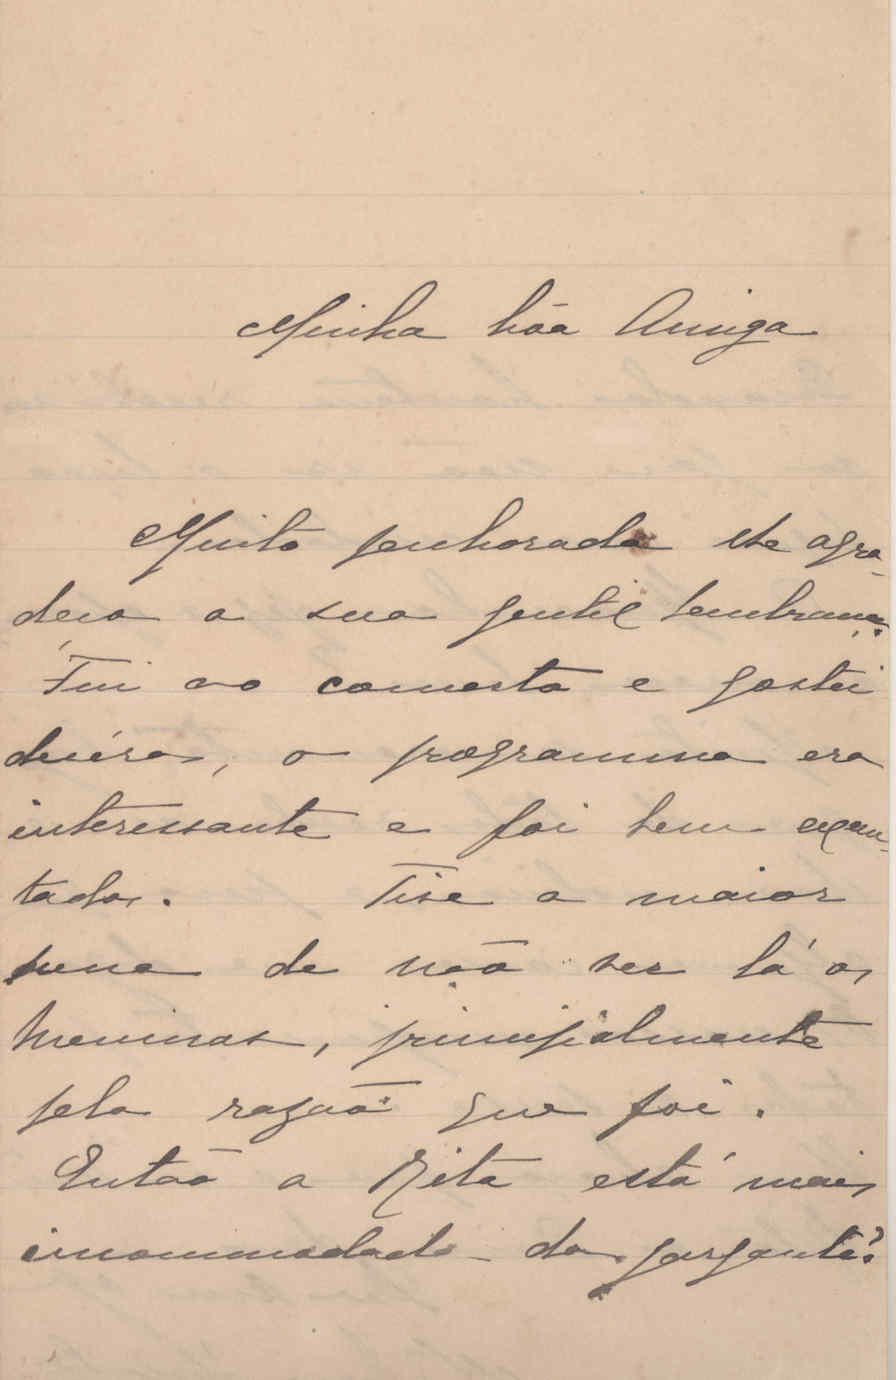 Minha bôa Amiga
Muito penhorada lhe agra-
deço a sua gentil lembrança.
Fui ao concerto e gostei
devéras, o programma era
interessante e foi bem execu-
tado. Tive a maior
pena de não ver lá as
meninas, principalmente
pela razão que foi.
Então a Rita está mais
incommodada da garganta?